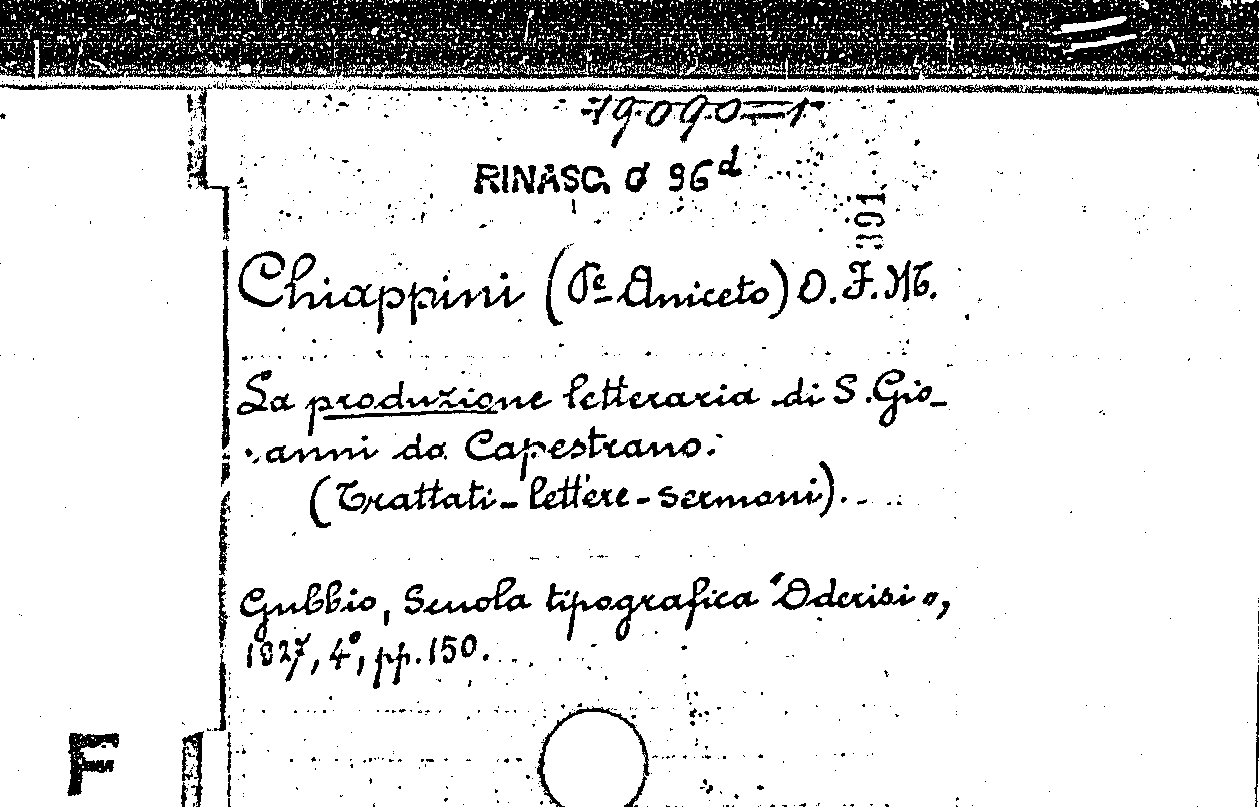 19090=1
RINASC. d 96 d
391
Chiappini (Pe Aniceto) O.F.M.
La produzione letteraria di S. Gio-
vanni da Capestrano.
(Trattati - lettere - sermoni).
Gubbio, Scuola tipografica "Oderisi",
1927, 4°, pp. 150.
F